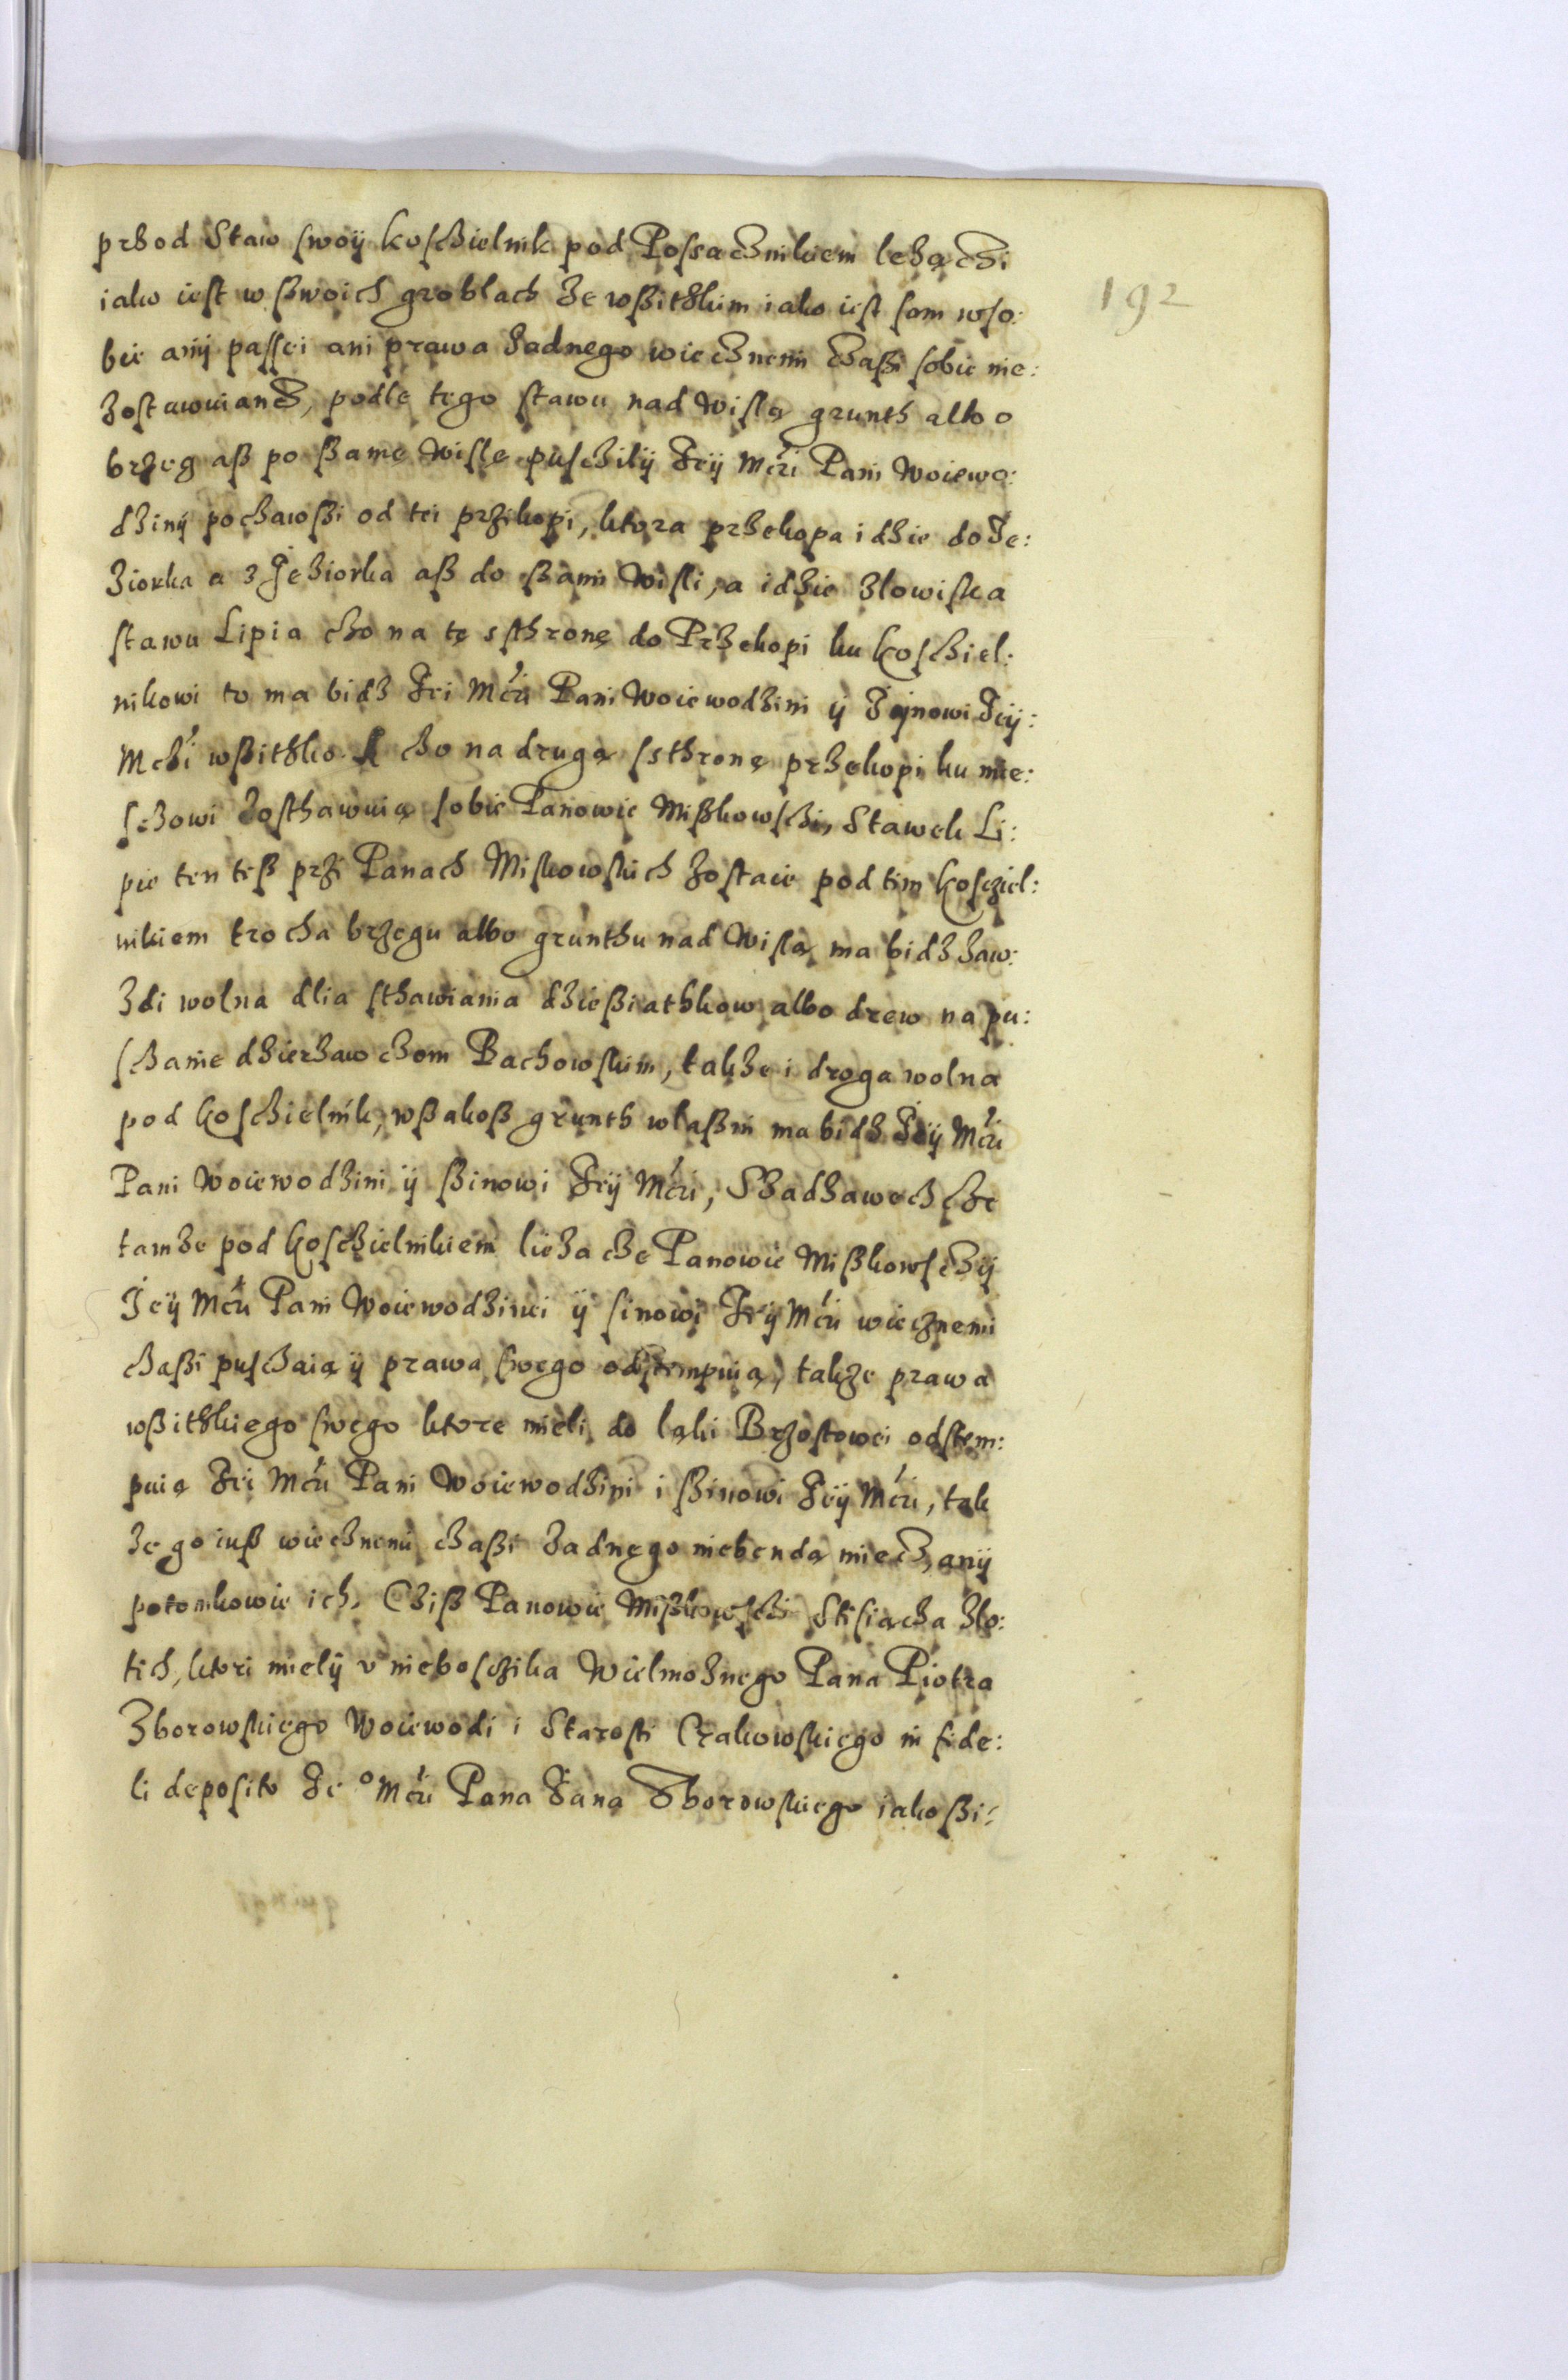 przod Staw swoÿ koschielnik pod Possacznikiem lezączi
iako iest w sswoich groblach ze wßitzkim iako iest sam wso:
bie aniÿ passei ani prawa zadnego wiecznemi czaßi sobie nie:
zostawuiancz, podle tego stawu nad Wisłą grunth albo
brzeg aß po ßamę Wisłę puszchilÿ Jeÿ Mczi Pani Woiewo:
dzinÿ poczawßi od tei przikopi, ktora przekopa idzie do Je:
ziorka a z Jeziorka aß do ßamii Wisli, a idzie złowiska
stawu Lipia czo na tę sthronę do Przekopi ku koschiel:
nikowi to ma bidz Jei Mczi Pani Woiewodzini ÿ Sÿnowi Jeÿ:
Mczi wßitzko. A czo na drugą ssthronę przekopi ku mie:
sczowi zosthawuią sobie Panowie Mißkowsczi, Stawek Li:
pie ten teß przi Panach Miskowskich zostaie pod tim koscziel:
nikiem trocha brzegu albo grunthu nad Wisłą ma bidz zaw:
zdi wolna dlia sthawiania dzießiatkow albo drew na pu:
sczanie dzierzawczom Bachowskim, takze i droga wolna
pod koschielnik, wßakoß grunth własni ma bidz Jeÿ Mczi
Pani Woiewodzini ÿ ßinowi Jeÿ Mczi, Szadzaweczkę
tamze pod koschielnikiem liezacze Panowie Mißkowsczÿ
Jeÿ Mczi Pani Woiewodzinei ÿ sinowi Jeÿ Mczi wiecznemi
czaßi pusczaią ÿ prawa swego odstempuią, takze prawa
wßitzkiego swego ktore mieli do łąki Brzostowei odstem:
puią Jei Mczi Pani Woiewodzini i ßinowi Jeÿ Mczi, tak
ze go iuß wiecznemi czaßi zadnego niebendą miecz, aniÿ
potomkowie ich. Cziß Panowie Mißkowsczi Stisiącza zło:
tich, ktori mielÿ v niebosczika Wielmoznego Pana Piotra
Zborowskiego Woiewodi i Starosti Crakowskiego in fide:
li deposito Je° Mczi Pana Jana Zborowskiego iako ßi:
192